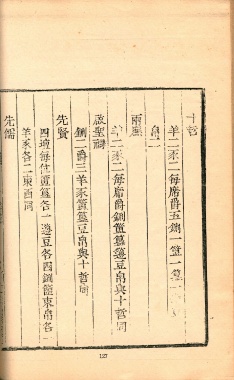 十哲
羊二豕二每席爵五鉶一簠一簋一
帛二
兩廡
羊二豕二每席爵鉶簠簋籩豆帛與十哲同
啟聖祠
鉶二爵三羊豕簠簋豆帛與十哲同
先賢
四壇每位簠簋各一籩豆各四鉶籩東帛各一
羊豕各二東西同
先儒
127